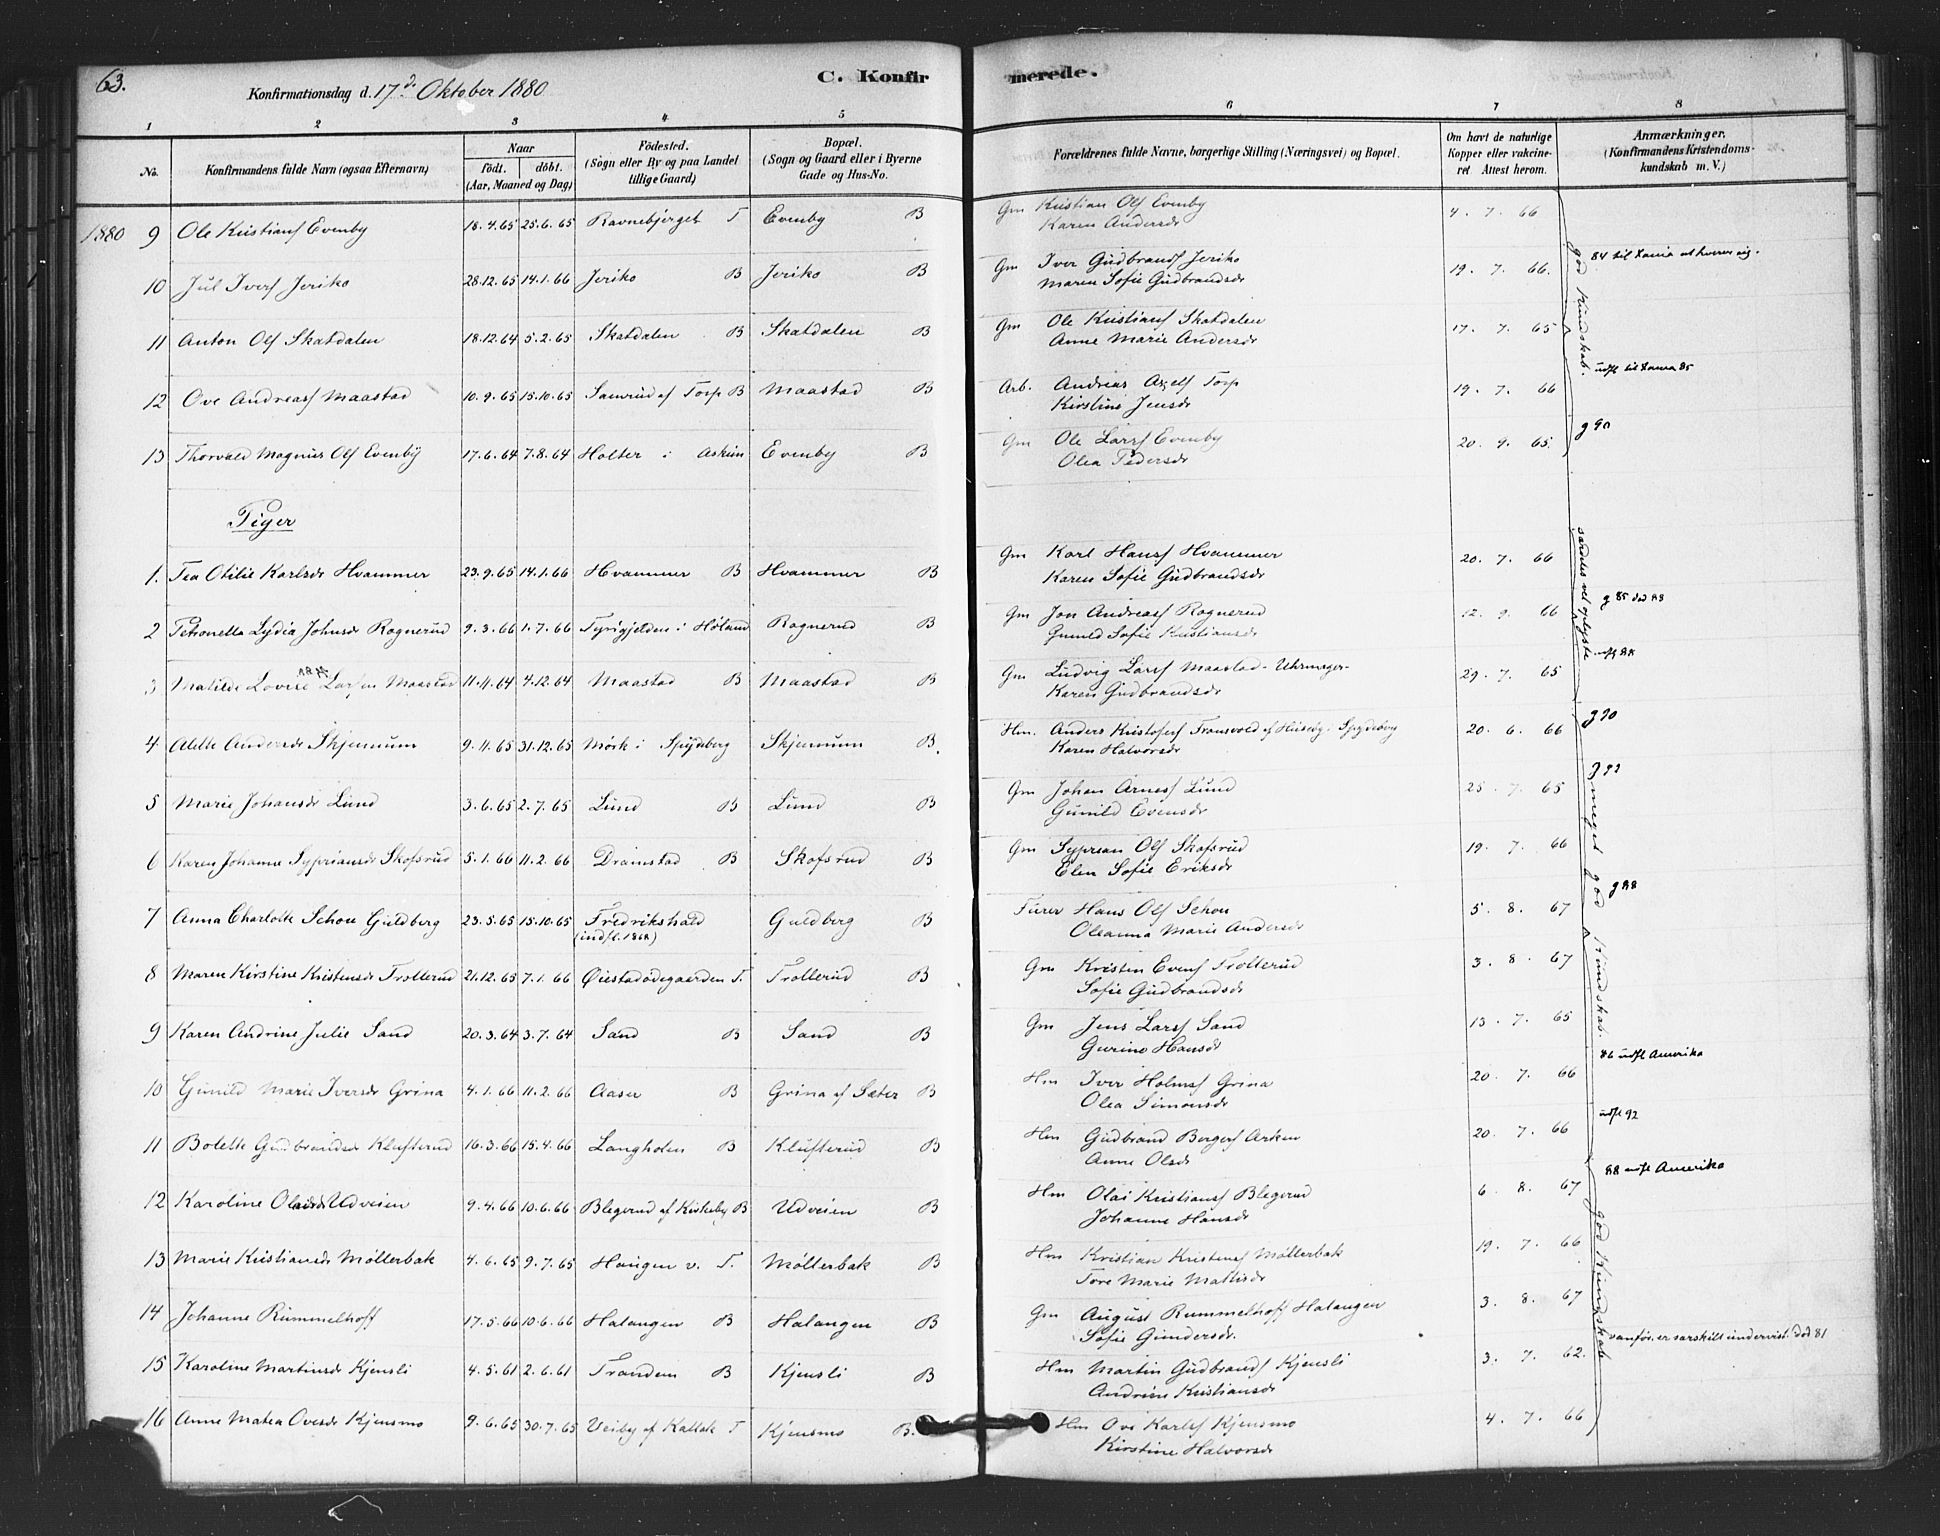 63.
Konfirmationsdag d. 17d. Oktober 1880
C. Konfirmerede.
1 2 3 4 5 6 7 8
No.
Konfirmandens fulde Navn (ogsaa Efternavn)
Naar
født. døbt.
(Aar, Maaned og Dag)
Födested.
(Sogn eller By og paa Landet
tillige Gaard)
Bopæl.
(Sogn og Gaard eller i Byerne
Gade og Hus-No.
Forældrenes fulde Navne, borgerlige Stilling (Næringsvei) og Bopæl.
Om havt de naturlige
Kopper eller vakcine-
ret Attest herom.
Anmærkninger.
(Konfirmandens Kristendoms-
kundskab m. V.)
1880 9 Ole Kristians Evenby 18.4.65 25.6.65 Ravnebjerget T Evenby B Gm Kristian Ols Evenby 4. 7. 66
Karen Andersdr
10 Jul Ivers Jeriko 28.12.65 14.1.66 Jeriko B Jeriko B Gm Iver Gudbrands Jeriko 19. 7. 66.
Maren Sofie Gudbrandsdr
11 Anton Ols Skatdalen 18.12.64 5.2.65 Skatdalen B Skatdalen B Gm Ole Kristians Skatdalen 17. 7. 65
Anne Marie Andersdr
god Kundskab.
12 Ove Andreass Maastad 10.9.65 15.10.65 Samrud af Torp B Maastad B Arb. Andreas Torp 19. 7. 66
Kirstine Jensdr
13 Thorvald Magnus Ols Evenby 17.6.64 7.8.64 Holter i Askim Evenby B Gm Ole Larss Evenby 20. 9. 65 g 90
Olea Pedersdr
Piger
1. Tea Otilie Karlsdr Hvammer 23.9.65 14.1.66 Hvammer B Hvammer B Gm Karl Hanss Hvammer 20. 7. 66
Karen Sofie Gudbrandsdr
2 Petronella Lydia Johnsdr Rognerud 9.3.66 1.7.66 i Høland Rognerud B Gm Jon Andreass Rognerud 12. 9. 66 g 85 død 88
Gunild Sofie Kristiansdr
3 Matilde Lovise Larsen Maastad 11.11.64 4.12.64 Maastad B Maastad B Gm Ludvig Larss Maastad - Uhrmager 29. 7. 65
Karen Gudbrandsdr
4 Alette Andersdr Skjennum 9.11.65 31.12.65 Mørk i Spydeberg Skjennum B. Hm. Anders Kristofers Transvold af Huseby i Spydeberg 20. 6. 66 g 90
Karen Halvorsdr
5 Marie Johansdr Lund 3.6.65 2.7.65 Lund B Lund B Gm Johan Arness Lund 25. 7. 65 g 92
Gunild Evensdr
6 Karen Johanne Sypriansdr Skofsrud 5.1.66 11.2.66 Dramstad B Skofsrud B Gm Syprian Ols Skofsrud 19. 7. 66
Elen Sofie Eriksdr
meget god Kundskab.
7 Anna Charlotte Schou Guldberg 23.5.65 15.10.65 Fredrikshald Guldberg B Furer Hans Ols Schou 5. 8. 67 g 88
(indfl. 1868) Oleanna Marie Andersdr
8 Maren Kirstine Kristensdr Trollerud 21.12.65 7.1.66 Øiestadødegaarden T. Trollerud B Gm Kristen Evens Trollerud 3. 8. 67
Sofie Gudbrandsdr
9 Karen Andrine Julie Sand 20.3.64 3.7.64 Sand B Sand B Gm Jens Larss Sand 13. 7. 65
Gurine Hansdr
10 Gunild Marie Iversdr Grina 4.1.66 11.2.66 Aaser B Grina af Sæter B Hm Iver Holms Grina 20. 7. 66 86 udfl Amerika
Olea Simonsdr
11 Bolette Gudbrandsdr Klufterud 16.3.66 15.4.66 Langholen B Klufterud B Hm Gudbrand Bergers Arken 20. 7. 66 udfl 92
Anne Olsdr
12 Karoline Olaisdr Udveien 9.4.66 10.6.66 Blegerud af Kirkeby B Udveien B Hm Olai Kristians Blegerud 6. 8. 67 88 udfl Amerika
Johanne Hansdr
13 Marie Kristiansdr Møllerbak 4.6.65 9.7.65 Haugen v. T. Møllerbak B Hm Kristian Kristens Møllerbak 19. 7. 66
Tore Marie Mattisdr
god Kundskab
14 Johanne Rummelhoff 17.5.66 10.6.66 Halangen B Halangen B Gm August Rummelhoff Halangen 3. 8. 67
Sofie Gundersdr.
15 Karoline Martinsdr Kjensli 4.5.61 2.6.61 Tranden B Kjensli B Hm Martin Gudbrands Kjensli 3. 7. 62. vanfør. er særskilt undervist. død 81
Andrine Kristiansdr
16 Anne Matea Ovesdr Kjensmo 9.6.65 30.7.65 Veiby af Kallak T Kjensmo B. Hm Ove Karls Kjensmo 4. 7. 66
Kirstine Halvorsdr